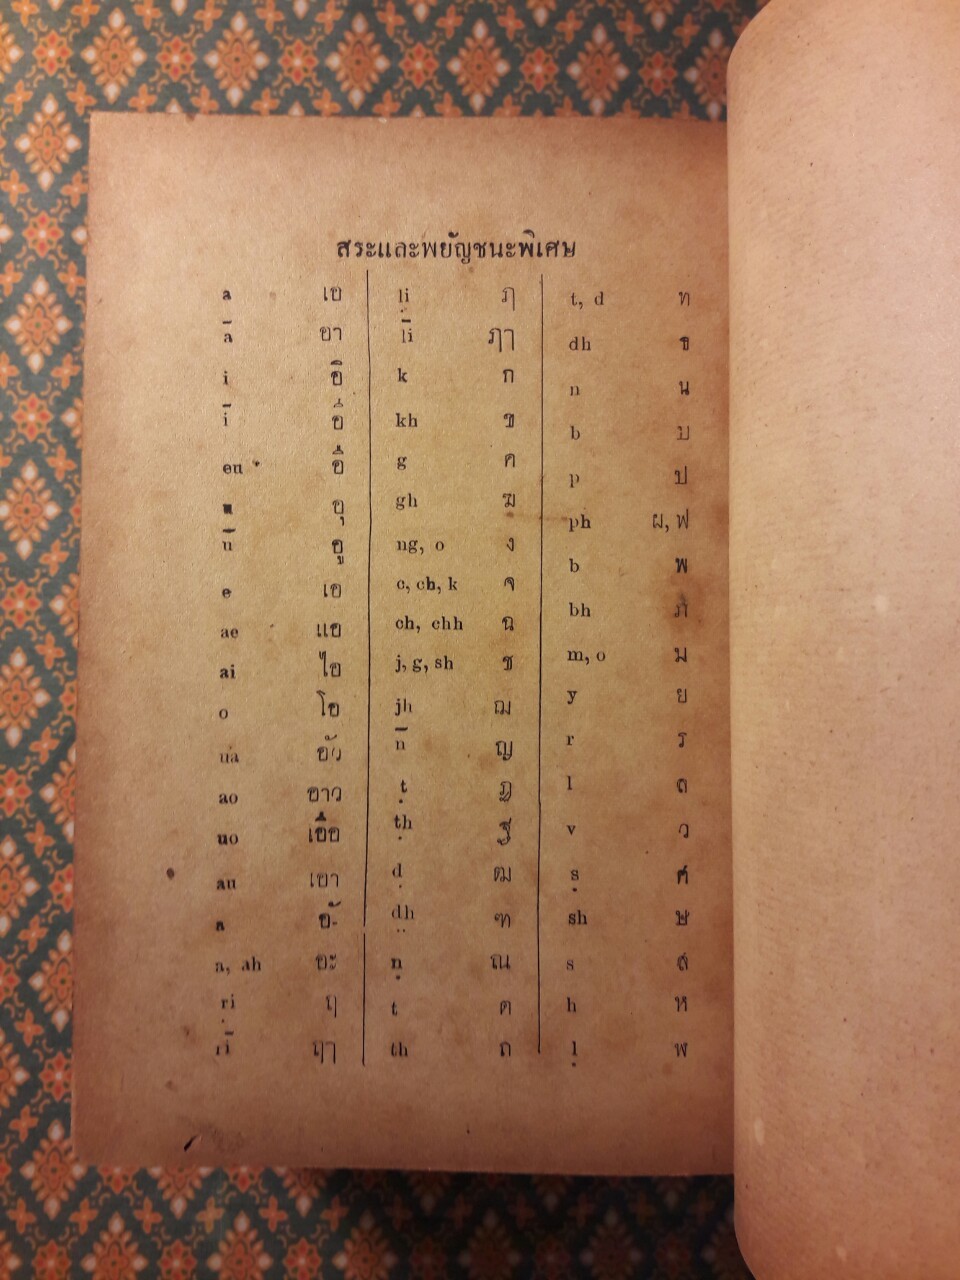 สระและพยัญชนะพิเศษ
a เอ
ā อา
i อิ
ī อี
eu อื
u อุ
ū อู
e เอ
ae แอ
ai ไอ
o โอ
ua อัว
ao อาว
uo เอือ
au เอา
a อะ
a, ah อะ
ṛi ฤ
ṛī ฤา
ḷi ฦ
ḷī ฦา
k ก
kh ข
g ค
gh ฆ
ng, o ง
c, ch, k จ
ch, chh ฉ
j, g, sh ช
jh ฌ
n̄ ญ
ṭ ฏ
ṭh ฐ
ḍ ฒ
dh ฑ
ṇ ณ
t ต
th ถ
t, d ท
dh ธ
n น
b บ
p ป
ph ผ, ฟ
b พ
bh ภ
m, o ม
y ย
r ร
l ล
v ว
ṣ ศ
sh ษ
s ส
h ห
ḷ ฬ